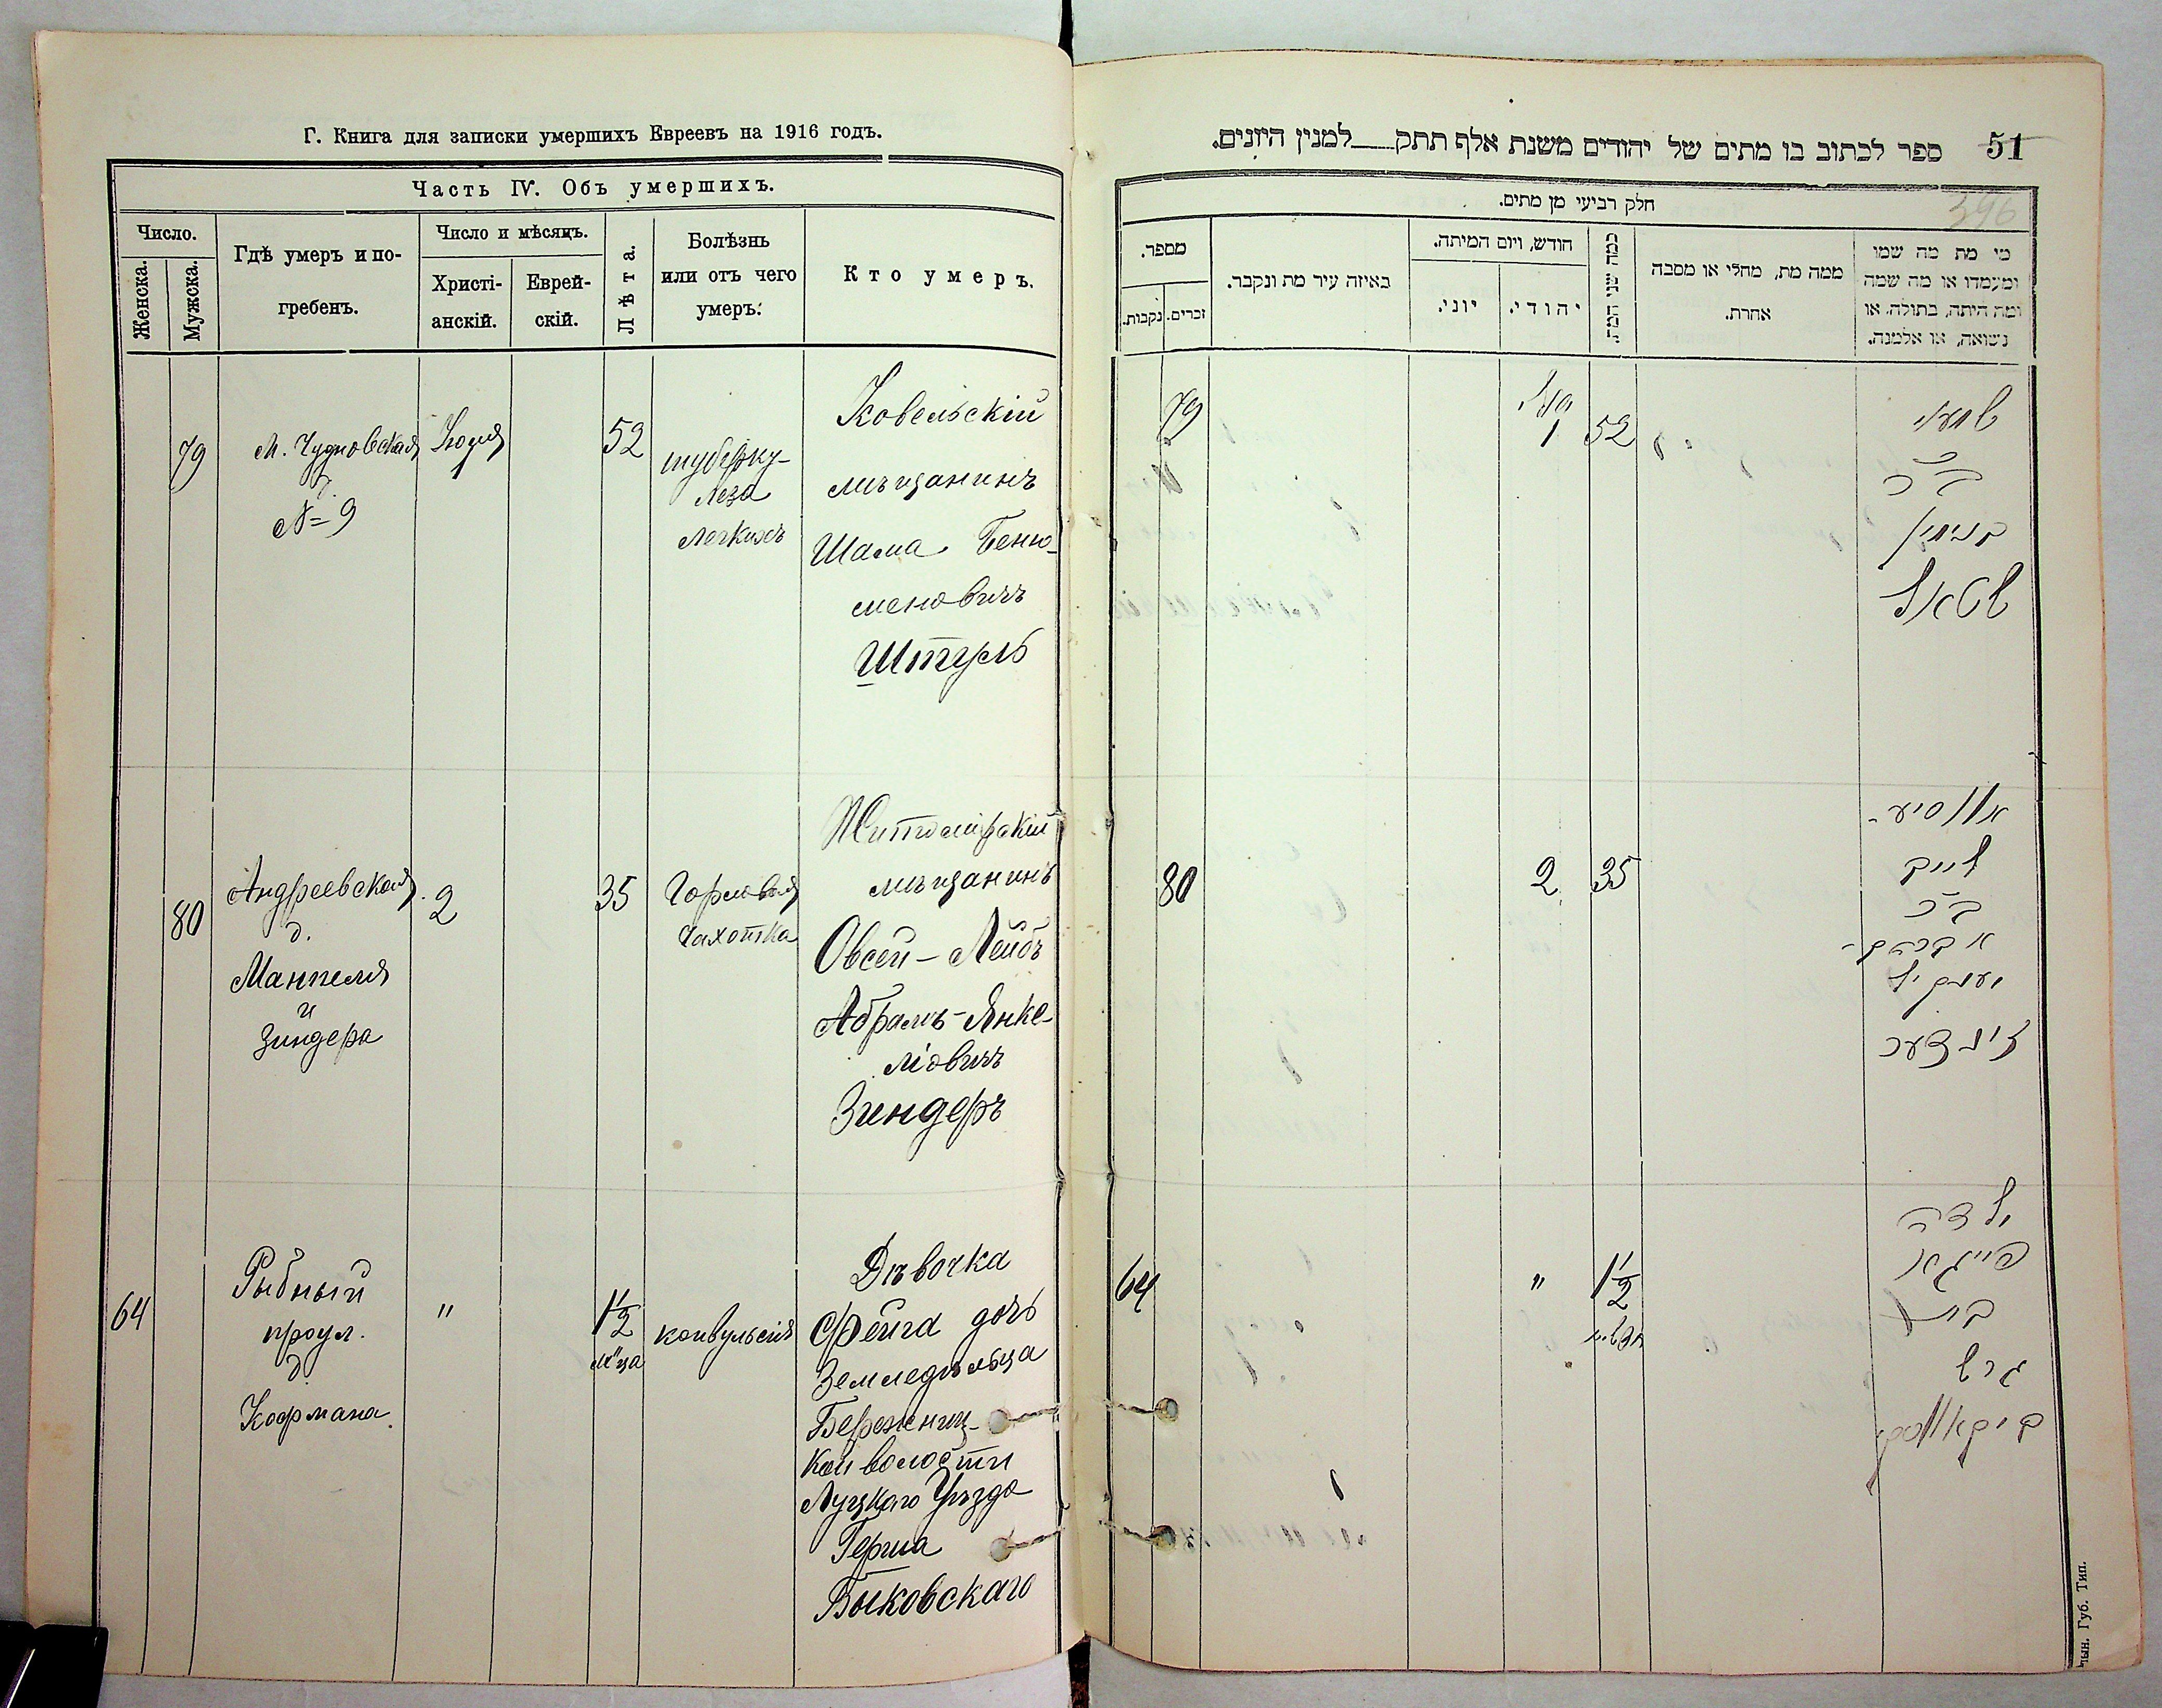 Г. Книга для записки умершихъ Евреевъ на 1916 годъ.
Часть IV. Объ умершихъ.
Число.
Женска.
Мужска.
Гдѣ умеръ и по-
гребенъ.
Число и мѣсяцъ.
Христі-
анскій.
Еврей-
скій.
Лѣта.
Болѣзнь
или отъ чего
умеръ:
Кто умеръ.
79
М. Чудновская
д.
№ 9
Іюля
1
52
туберку-
леза
легкихъ
Ковельскій
мѣщанинъ
Шама Беню-
меновичъ
Штуль
80
Андреевская
д.
Манпеля
и
Зиндера
2
35
Горловая
чахотка
Житомірскій
мѣщанинъ
Овсей-Лейбъ
Абрамъ-Янке-
ліовичъ
Зиндеръ
64
Рыбный
проул.
д.
Кофмана.
"
1 1/2
м"ца
конвульсія
Дѣвочка
Фейга дочь
Земледѣльца
Бережниц-
кой волости
Луцкаго Уѣзда
Герша
Быковскаго
51
ספר לכתוב בו מתים של יהודים משנת אלף תתק___למנין היונים.
396
חלק רביעי מן מתים.
מספר.
נקבות.
זכרים.
באיזה עיר מת ונקבר.
חודש, ויום המיתה.
יוני.
יהודי.
כמה שני המת.
ממה מת, מחלי או מסבה
אחרת.
מי מת מה שמו
ומעמדו או מה שמה
ומה היתה, בתולה, או
נשואה, או אלמנה.
79
יולי
1
52
שמעי
ב"ר
בנימין
80
2
35
לייב
ב"ר
אברהם-
יענקיל
זינדער
64
"
1 1/2
חדשים
ילדה
פייגא
בת
הרש
ביקאווסקי
лын. Губ. Тип.